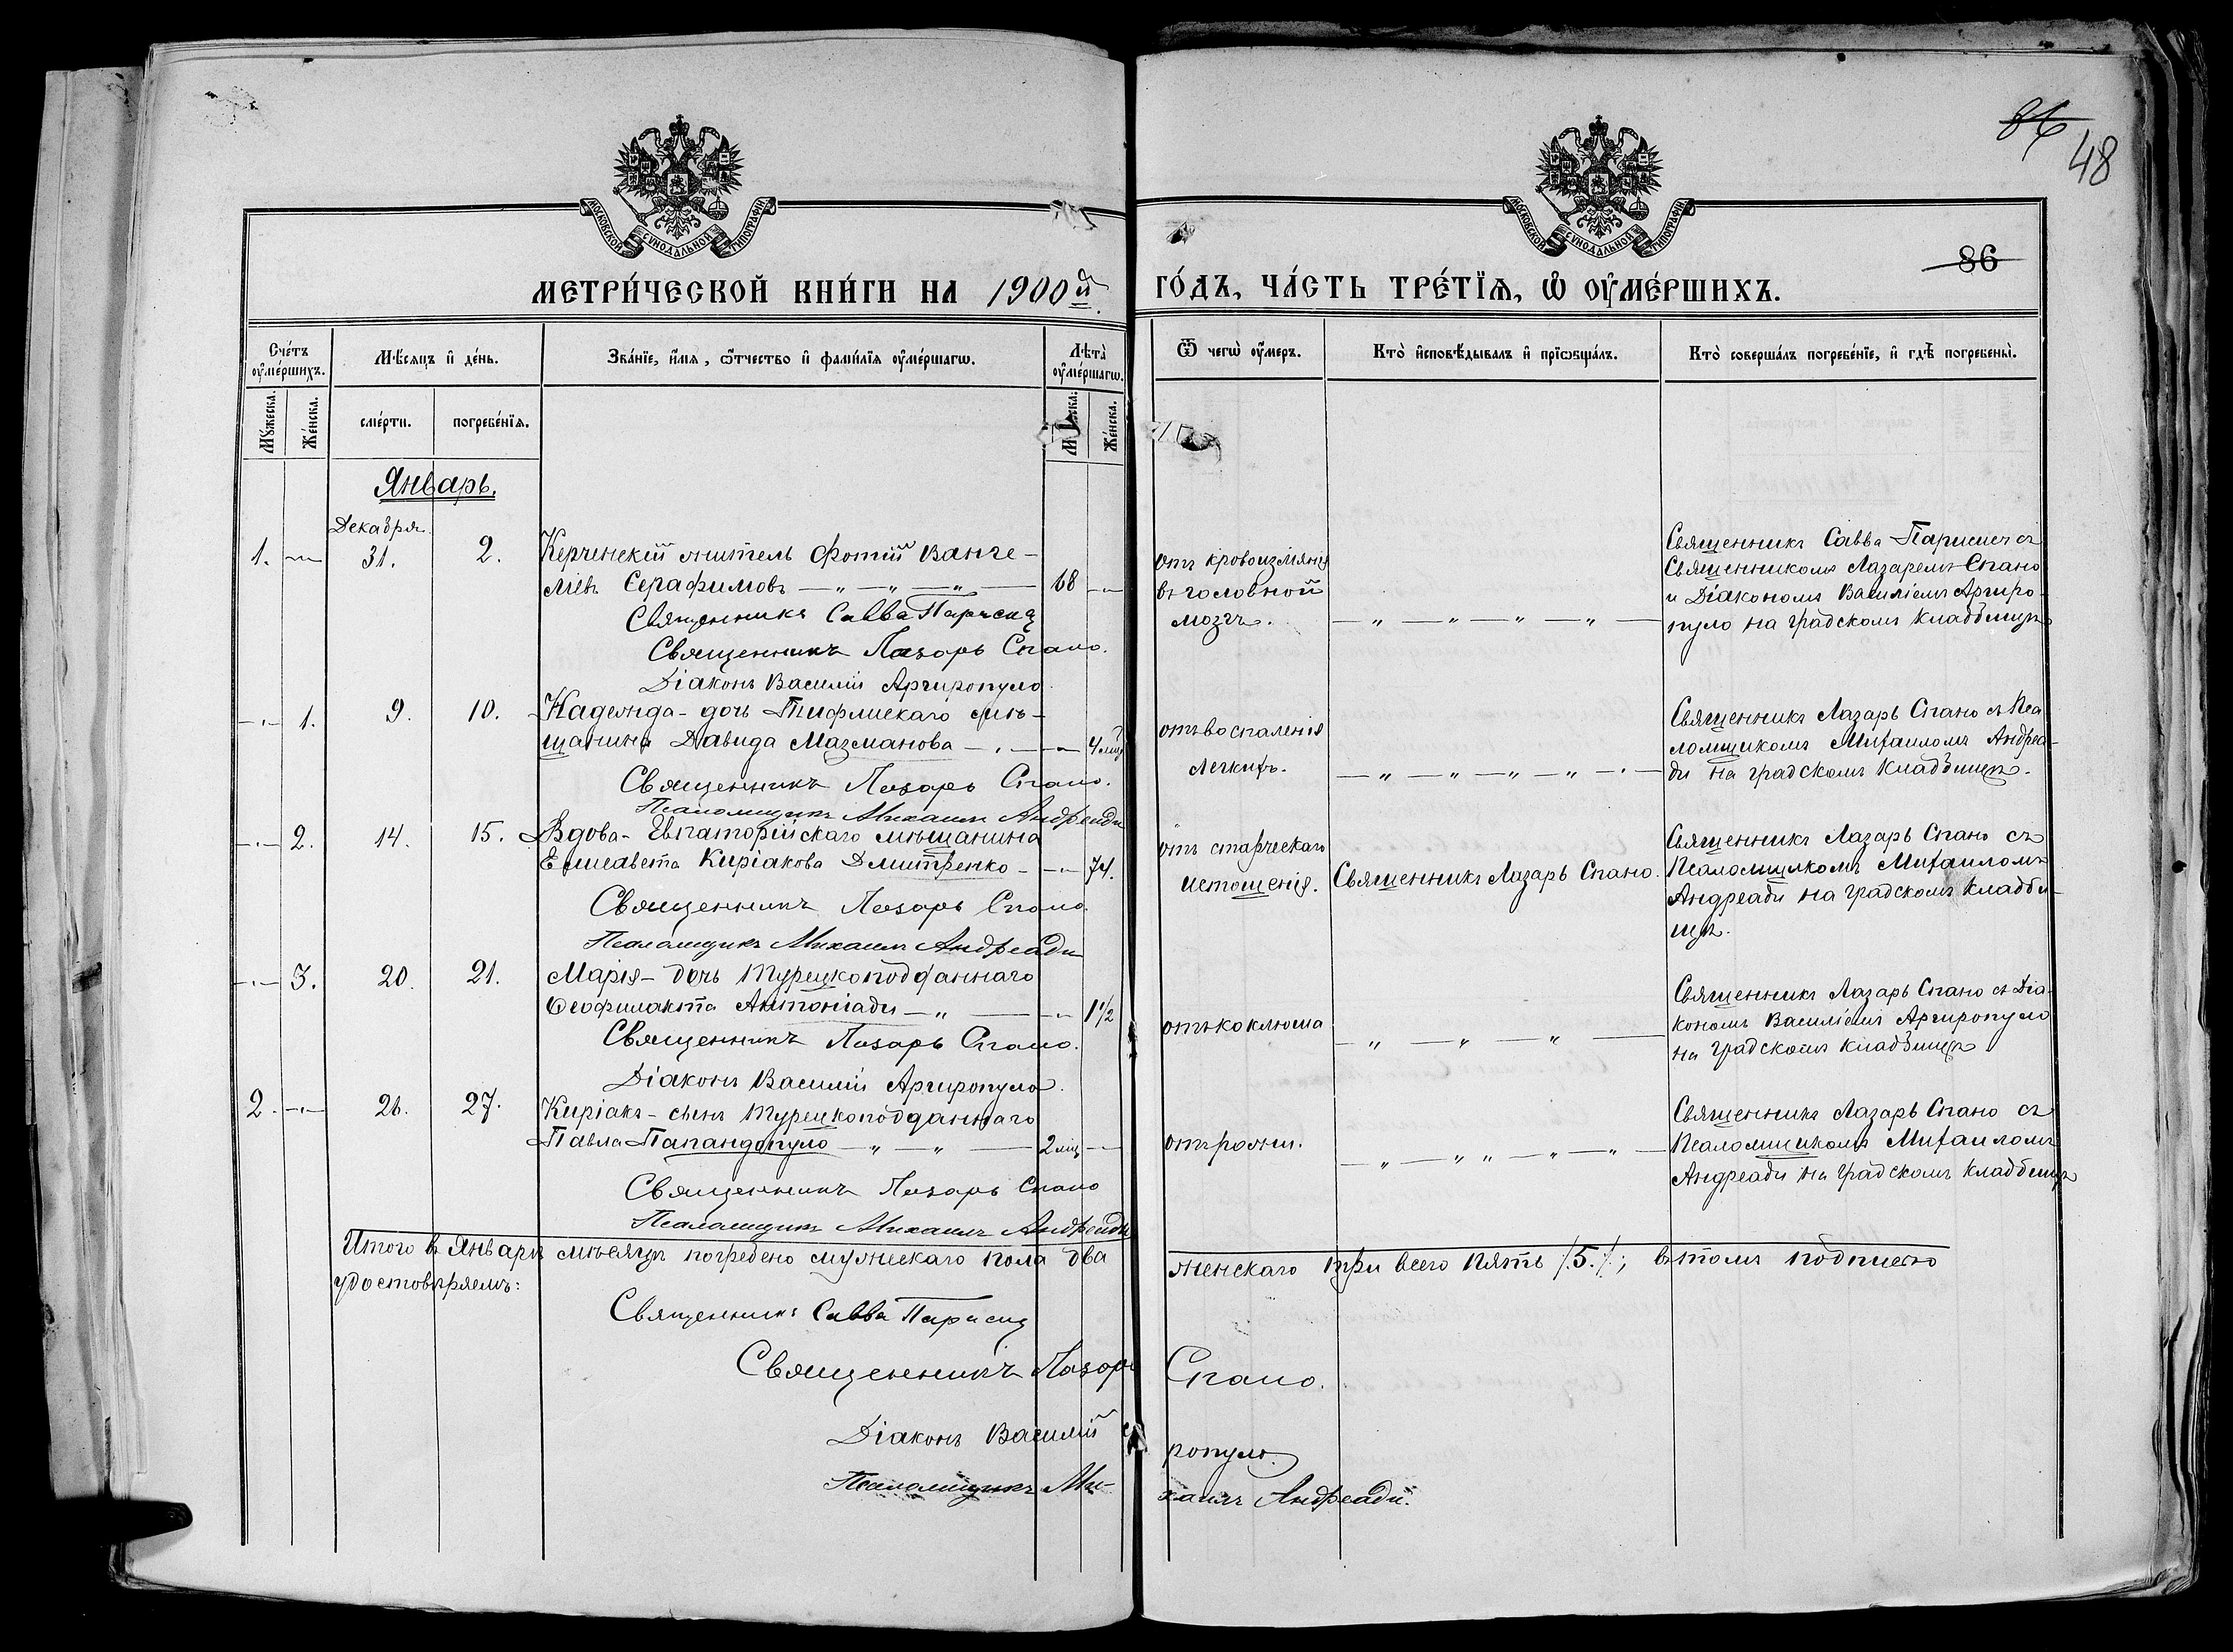 86
48
МОСКОВСКОЙ СѴНОДАЛЬНОЙ ТИПОГРАФІИ
МОСКОВСКОЙ СѴНОДАЛЬНОЙ ТИПОГРАФІИ
86
МЕТРИ́ЧЕСКОЙ КНИ́ГИ НА 1900й
ГО́ДЪ, ЧА́СТЬ ТРЕ́ТЇѦ, Ѡ҆ ОУ҆МЕ́РШИХЪ.
Сче́тъ оу҆ме́ршихъ.
Мѣ́сѧцъ и҆ де́нь.
Зва́нїе, и҆́мѧ, ѻ҆́тчество и҆ фами́лїѧ оу҆ме́ршагѡ.
Лѣ́та оу҆ме́ршагѡ.
Ѿ чегѡ̀ оу҆́мер.
Кто̀ и҆сповѣ́дывалъ и҆ прїѡбща́лъ.
Кто̀ соверша́лъ погребе́нїе, и҆ гдѣ̀ погребены̀.
Мꙋ́жеска.
Же́нска.
сме́рти.
погребе́нїѧ.
Же́нска.
Январь.
Декабря
1. 31. 2. Керченскій житель Фотій Ванге-
лiевъ Серафимовъ 68
Священникъ Савва Парисид
Священникъ Лазарь Спано.
Діаконъ Василій Аргиропуло
отъ кровоизліянія
въ головной
мозгъ.
Священникъ Савва Парисис съ
Священникомъ Лазаремъ Спано
и Діакономъ Василіемъ Аргиро-
пуло на градскомъ кладбищѣ
1. 9. 10. Надежда - дочь Тифлискаго мѣ-
щанина Давида Мазманова 4 мѣс
Священникъ Лазарь Спано.
Псаломщикъ Михаилъ Андреади
отъ воспаленія
легкихъ.
Священникъ Лазарь Спано съ Пса-
ломщикомъ Михаиломъ Андреа-
ди на градскомъ кладбищѣ.
2. 14. 15. Вдова - Евпаторійскаго мѣщанина
Елисавета Киріакова Дмитренко 74.
Священникъ Лазарь Спано.
Псаломщикъ Михаилъ Андреади
отъ старческаго
истощенія.
Священникъ Лазарь Спано.
Священникъ Лазарь Спано съ
Псаломщикомъ Михаиломъ
Андреади на градскомъ кладби-
щѣ.
3. 20. 21. Марія - дочь турецкоподданнаго
Феофилакта Антоніади 1 1/2
Священникъ Лазарь Спано.
Діаконъ Василій Аргиропуло.
отъ коклюша
Священникъ Лазарь Спано съ Діа-
кономъ Василіемъ Аргиропуло
на градскомъ кладбищѣ
2. 26. 27. Киріакъ - сынъ турецкоподданнаго
Павла Папандопуло 2 мѣс
Священникъ Лазарь Спано
Псаломщикъ Михаилъ Андреади
отъ рожи.
Священникъ Лазарь Спано съ
Псаломщикомъ Михаиломъ
Андреади на градскомъ кладбищѣ
Итого въ Январѣ мѣсяцѣ погребено мужескаго пола два
женскаго три всего пять /.5./; въ томъ подписью
удостовѣряемъ:
Священникъ Савва Парисид
Священникъ Лазарь Спано.
Діаконъ Василій
ропуло.
Псаломщикъ Ми-
хаилъ Андреади.